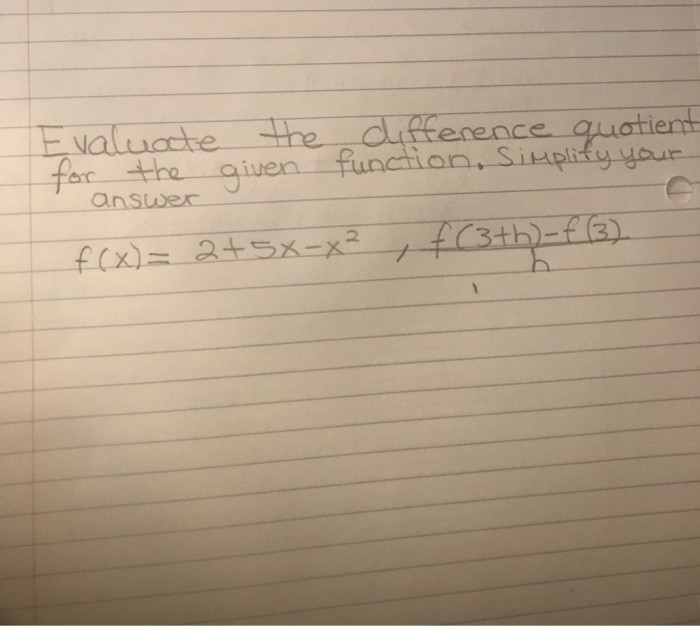 Evaluate the difference quotient
for the given function. Simplify your
answer
f(x) = 2+5x-x² , f(3+h)-f(3)
h